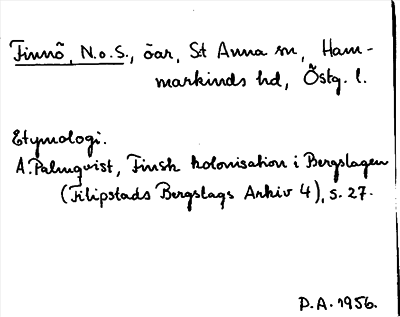 Finnö, N.o.S., öar, St Anna sn, Ham-
markinds hd, Östg. l.
Etymologi.
A. Palmqvist, Finsk kolonisation i Bergslagen
(Filipstads Bergslags Arkiv 4), s. 27.
P.A. 1956.